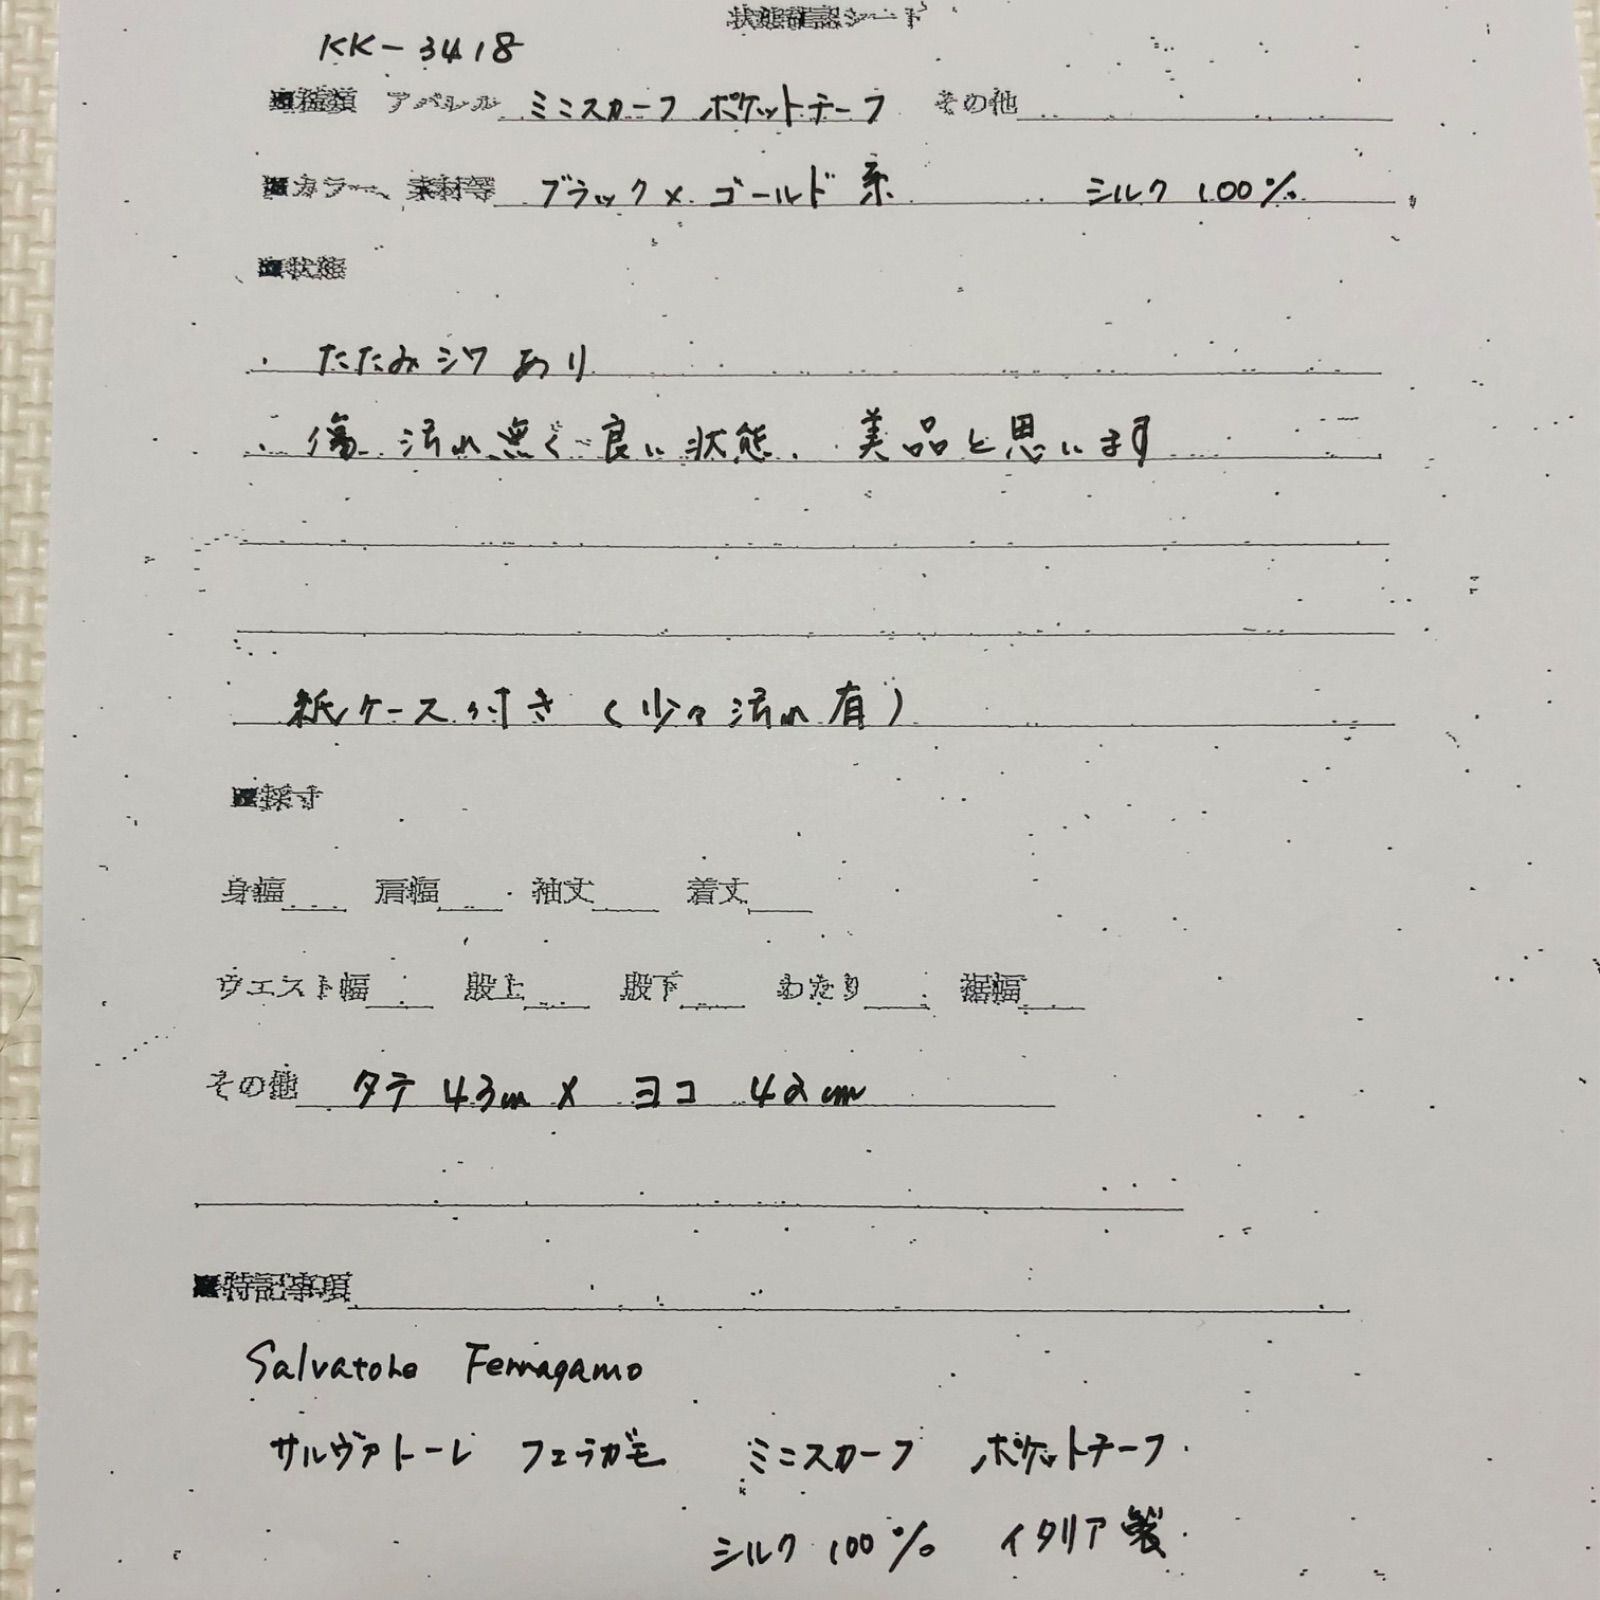 状態確認シート
KK-3418
■種類 アパレル ミニスカーフ ポケットチーフ その他
■カラー、素材等 ブラック×ゴールド系 シルク 100%
■状態
・たたみシワあり
・傷 汚れ無く良い状態、美品と思います
紙ケース付き(少々汚れ有)
■採寸
身幅 肩幅 袖丈 着丈
ウエスト幅 股上 股下 わたり 裾幅
その他 タテ 43cm × ヨコ 42cm
■特記事項
Salvatore Ferragamo
サルヴァトーレ フェラガモ ミニスカーフ ポケットチーフ.
シルク 100% イタリア製.